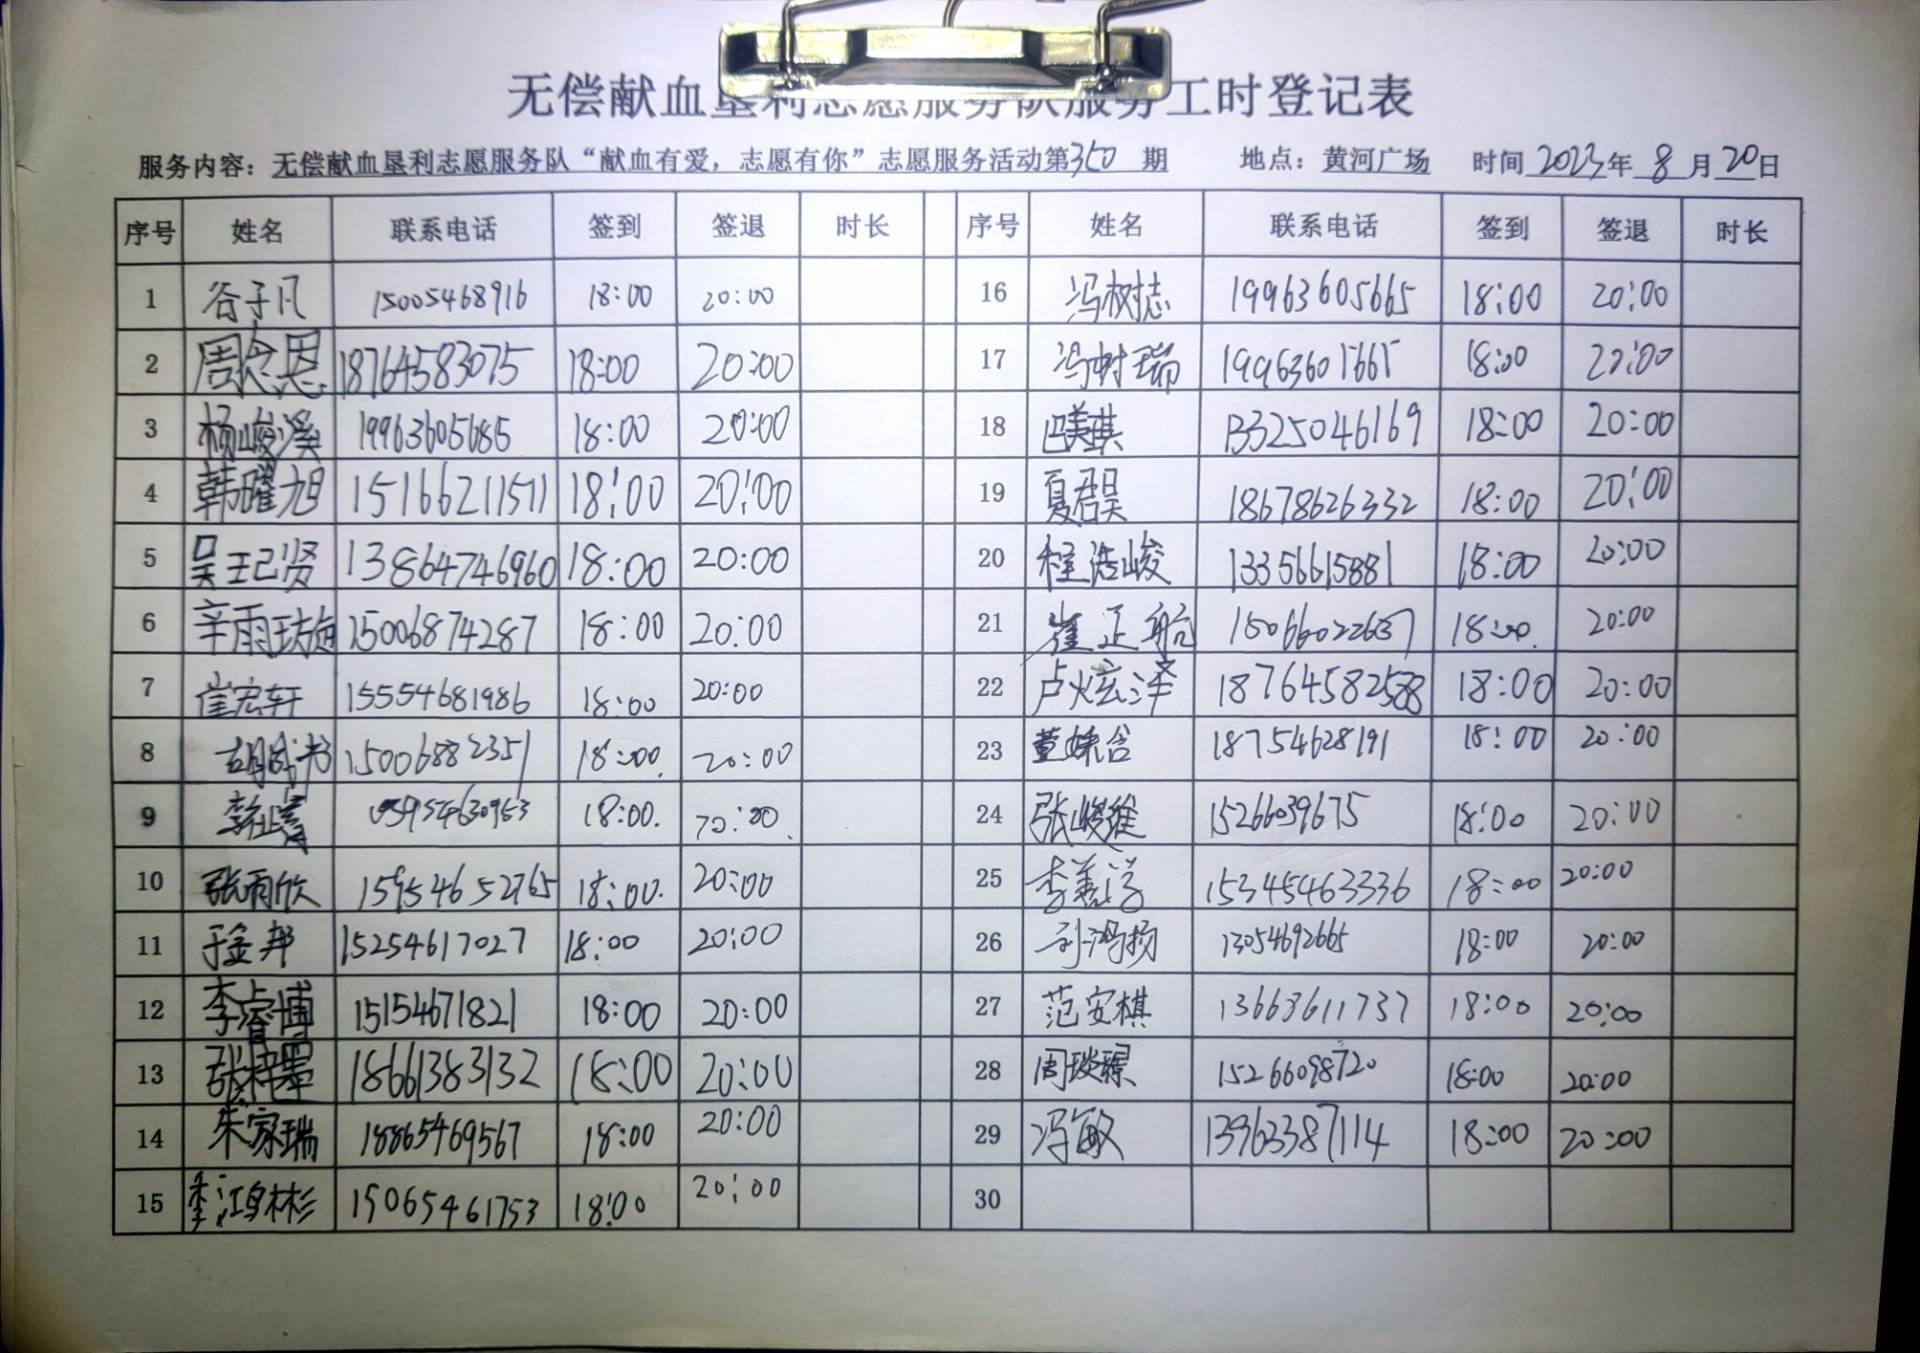 无偿献血垦利志愿服务队服务工时登记表
服务内容：无偿献血垦利志愿服务队“献血有爱，志愿有你”志愿服务活动第350期 地点：黄河广场 时间2023年8月20日
序号 姓名 联系电话 签到 签退 时长 序号 姓名 联系电话 签到 签退 时长
1 谷子凡 15005468916 18:00 20:00 16 冯树志 19963605665 18:00 20:00
2 周念恩 18764583075 18:00 20:00 17 冯树瑞 19963605665 18:00 20:00
3 杨峻溪 19963605685 18:00 20:00 18 巴美琪 13325046169 18:00 20:00
4 韩曜旭 15166211571 18:00 20:00 19 夏君昊 18678626332 18:00 20:00
5 吴玘贤 13864746960 18:00 20:00 20 程浩峻 13356615881 18:00 20:00
6 辛雨 15006874287 18:00 20:00 21 崔正航 15066022637 18:00 20:00
7 崔宏轩 15554681986 18:00 20:00 22 卢炫泽 18764582588 18:00 20:00
8 胡 15006882351 18:00 20:00 23 董姝含 18754628191 18:00 20:00
9 18:00 20:00 24 张峻维 15266039675 18:00 20:00
10 张雨欣 15954652765 18:00 20:00 25 李 15345463336 18:00 20:00
11 于金邦 15254617027 18:00 20:00 26 鸿扬 13054692665 18:00 20:00
12 李睿博 15154671821 18:00 20:00 27 范安棋 13663611737 18:00 20:00
13 张梓墨 18661383132 18:00 20:00 28 周琰璟 15266098720 18:00 20:00
14 朱家瑞 18865469567 18:00 20:00 29 冯敏 13963387114 18:00 20:00
15 李鸿彬 15065461753 18:00 20:00 30